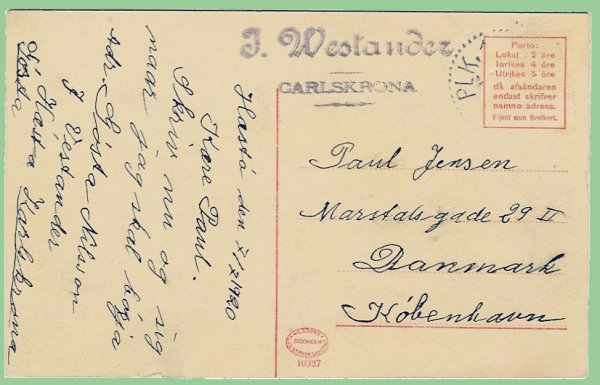 J. Westander
CARLSKRONA
PLK. 
Porto:
Lokal - 2 öre
Inrikes 4 öre
Utrikes 5 öre
då afsändaren
endast skrifver
namn o. adress.
Eljest som Brefkort.
Hastö den 7/7 1920
Kære Paul.
Skriv nu og sig
naar jag skal börja
adr. Gösta Nilsson
J Westander
Hästö Karlskrona
Gösta
Paul Jensen
Marstalsgade 29 II
Danmark
København
NILSSONS
STOCKHOLM
10327